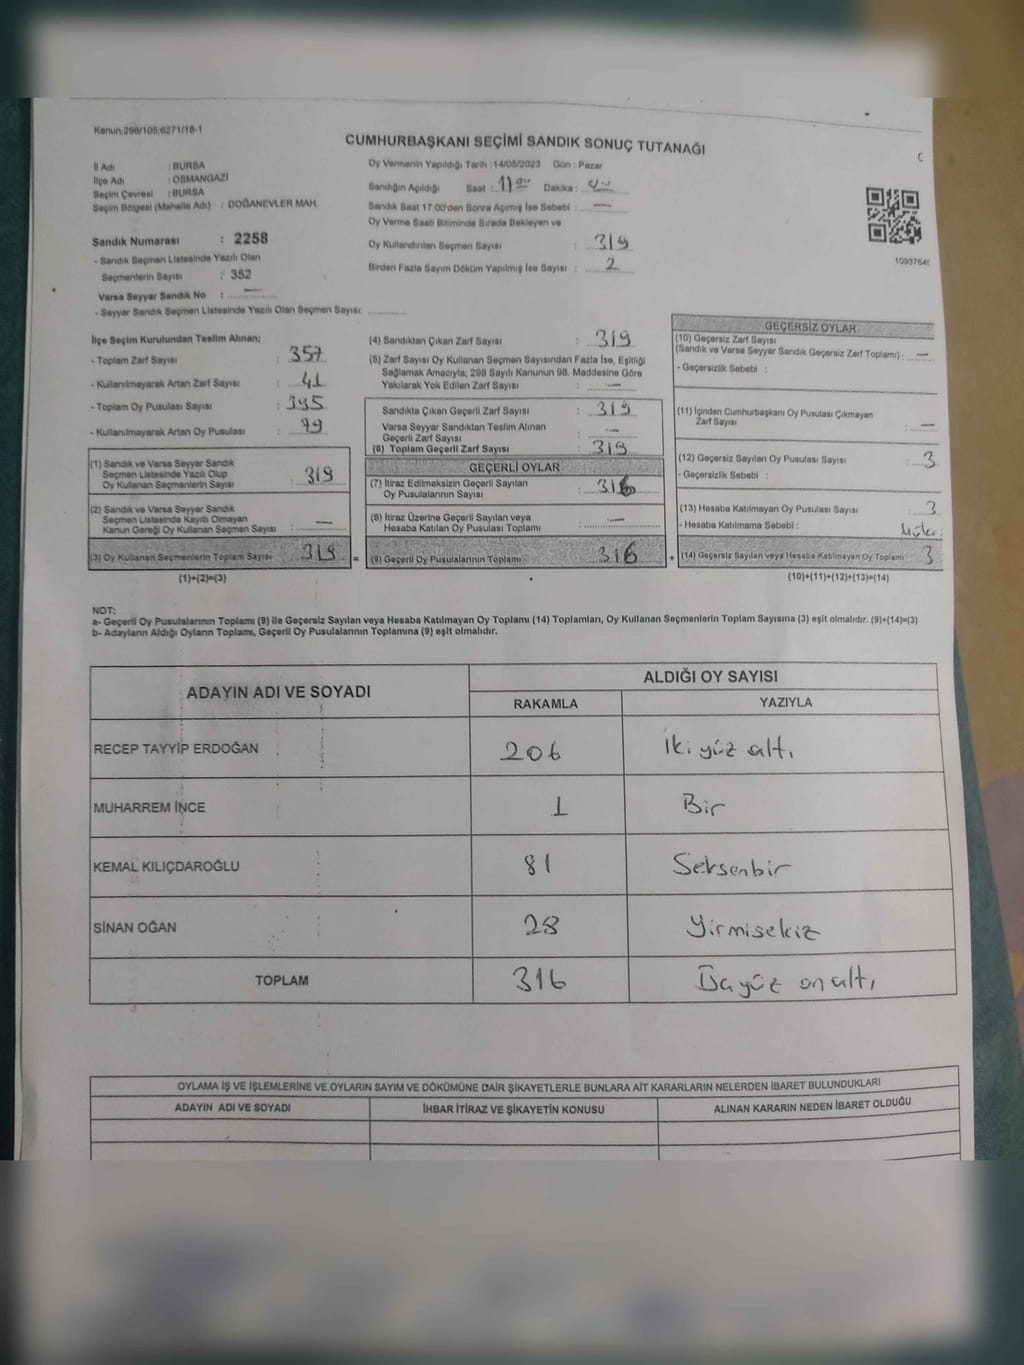 Kanun;298/108,6271/18-1
CUMHURBAŞKANI SEÇİMİ SANDIK SONUÇ TUTANAĞI
İl Adı : BURSA
İlçe Adı : OSMANGAZİ
Seçim Çevresi : BURSA
Seçim Bölgesi (Mahalle Adı) : DOĞANEVLER MAH.
Sandık Numarası : 2258
- Sandık Seçmen Listesinde Yazılı Olan
Seçmenlerin Sayısı : 352
Varsa Seyyar Sandık No : —
- Seyyar Sandık Seçmen Listesinde Yazılı Olan Seçmen Sayısı:
Oy Vermenin Yapıldığı Tarih : 14/05/2023 Gün : Pazar
Sandığın Açıldığı Saat : Dakika :
Sandık Saat 17:00'den Sonra Açımış İse Sebebi : —
Oy Verme Saati Bitiminde Sırada Bekleyen ve
Oy Kullandırılan Seçmen Sayısı : 319
Birden Fazla Sayım Döküm Yapılmış İse Sayısı : 2
1093764
İlçe Seçim Kurulundan Teslim Alınan;
- Toplam Zarf Sayısı : 357
- Kullanılmayarak Artan Zarf Sayısı : 41
- Toplam Oy Pusulası Sayısı : 395
- Kullanılmayarak Artan Oy Pusulası : 79
(1) Sandık ve Varsa Seyyar Sandık
Seçmen Listesinde Yazılı Olup
Oy Kullanan Seçmenlerin Sayısı : 319
(2) Sandık ve Varsa Seyyar Sandık
Seçmen Listesinde Kayıtlı Olmayan
Kanun Gereği Oy Kullanan Seçmen Sayısı : —
(3) Oy Kullanan Seçmenlerin Toplam Sayısı : 319 =
(1)+(2)=(3)
(4) Sandıktan Çıkan Zarf Sayısı : 319
(5) Zarf Sayısı Oy Kullanan Seçmen Sayısından Fazla İse, Eşitliği
Sağlamak Amacıyla, 298 Sayılı Kanunun 98. Maddesine Göre
Yakılarak Yok Edilen Zarf Sayısı : —
Sandıkta Çıkan Geçerli Zarf Sayısı : 319
Varsa Seyyar Sandıktan Teslim Alınan
Geçerli Zarf Sayısı : —
(6) Toplam Geçerli Zarf Sayısı : 319
GEÇERLİ OYLAR
(7) İtiraz Edilmeksizin Geçerli Sayılan
Oy Pusulalarının Sayısı : 316
(8) İtiraz Üzerine Geçerli Sayılan veya
Hesaba Katılan Oy Pusulası Toplamı : —
(9) Geçerli Oy Pusulalarının Toplamı : 316 +
GEÇERSİZ OYLAR
(10) Geçersiz Zarf Sayısı
(Sandık ve Varsa Seyyar Sandık Geçersiz Zarf Toplamı) : —
- Geçersizlik Sebebi :
(11) İçinden Cumhurbaşkanı Oy Pusulası Çıkmayan
Zarf Sayısı : —
(12) Geçersiz Sayılan Oy Pusulası Sayısı : 3
- Geçersizlik Sebebi :
(13) Hesaba Katılmayan Oy Pusulası Sayısı : 3
- Hesaba Katılmama Sebebi :
(14) Geçersiz Sayılan veya Hesaba Katılmayan Oy Toplamı : 3
(10)+(11)+(12)+(13)=(14)
NOT:
a- Geçerli Oy Pusulalarının Toplamı (9) ile Geçersiz Sayılan veya Hesaba Katılmayan Oy Toplamı (14) Toplamları, Oy Kullanan Seçmenlerin Toplam Sayısına (3) eşit olmalıdır. (9)+(14)=(3)
b- Adayların Aldığı Oyların Toplamı, Geçerli Oy Pusulalarının Toplamına (9) eşit olmalıdır.
ADAYIN ADI VE SOYADI
ALDIĞI OY SAYISI
RAKAMLA YAZIYLA
RECEP TAYYİP ERDOĞAN 206 İki yüz altı
MUHARREM İNCE 1 Bir
KEMAL KILIÇDAROĞLU 81 Seksenbir
SİNAN OĞAN 28 Yirmisekiz
TOPLAM 316 yüz on altı
OYLAMA İŞ VE İŞLEMLERİNE VE OYLARIN SAYIM VE DÖKÜMÜNE DAİR ŞİKAYETLERLE BUNLARA AİT KARARLARIN NELERDEN İBARET BULUNDUKLARI
ADAYIN ADI VE SOYADI İHBAR İTİRAZ VE ŞİKAYETİN KONUSU ALINAN KARARIN NEDEN İBARET OLDUĞU